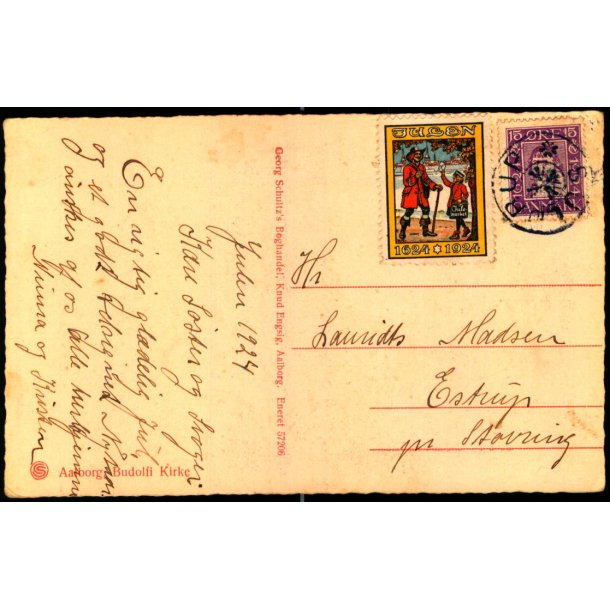 Julen 1924
Kære Søster og Svoger
En rigtig glædelig Jul,
og et godt Nytaar
ønskes af os alle herhjemme
Minna og Kristen
Aalborg. Budolfi Kirke
Georg Schultz's Boghandel, Knud Engsig, Aalborg. Eneret 57206
JULEN
Julemærket
1624 1924
15 ØRE 15
DANMARK
Hr
Lauridts Madsen
Estrup
pr Støvring